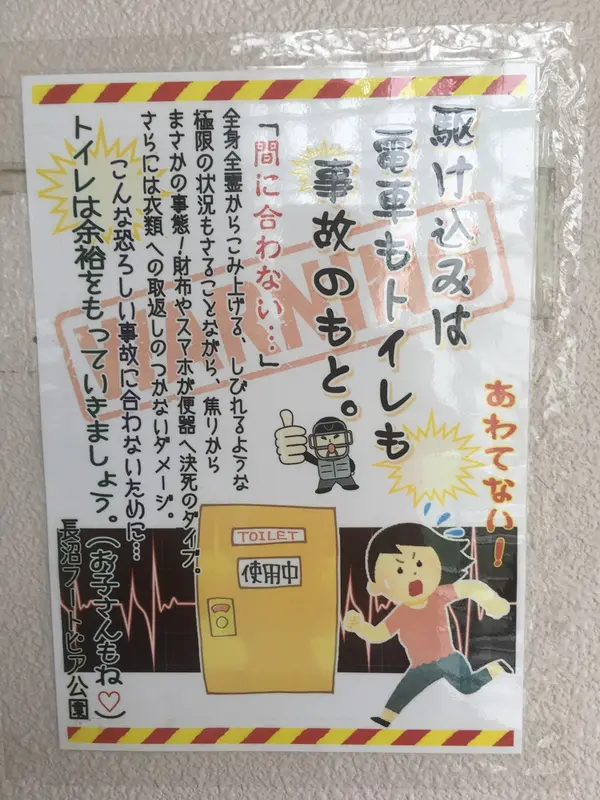 あわてない！
駆け込みは
電車もトイレも
事故のもと。
「間に合わない…」
全身全霊からこみ上げる、しびれるような
極限の状況もさることながら、焦りから
まさかの事態！財布やスマホが便器へ決死のダイブ。
さらには衣類への取返しのつかないダメージ。
こんな恐ろしい事故に合わないために…
トイレは余裕をもっていきましょう。
(お子さんもね♡)
長沼フートピア公園
WARNING
TOILET
使用中